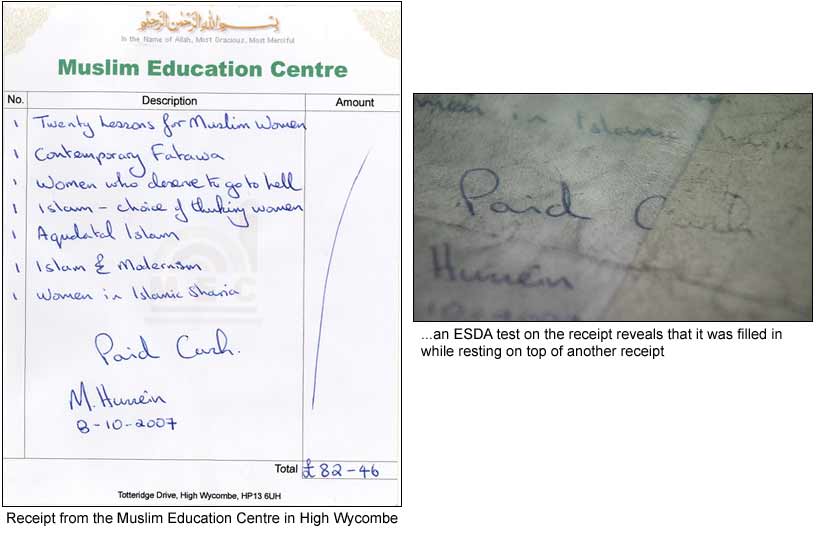 بسم الله الرحمن الرحيم
In the Name of Allah, Most Gracious, Most Merciful
Muslim Education Centre
No. Description Amount
1 Twenty Lessons for Muslim Women
1 Contemporary Fatawa
1 Women who deserve to go to hell
1 Islam - choice of thinking women
1 Aqudatal Islam
1 Islam & Modernism
1 Women in Islamic Sharia
Paid Cash.
M. Hussein
8-10-2007
Total £82-46
Totteridge Drive, High Wycombe, HP13 6UH
Receipt from the Muslim Education Centre in High Wycombe
in Islamic
Paid Cash
Hussein
...an ESDA test on the receipt reveals that it was filled in
while resting on top of another receipt